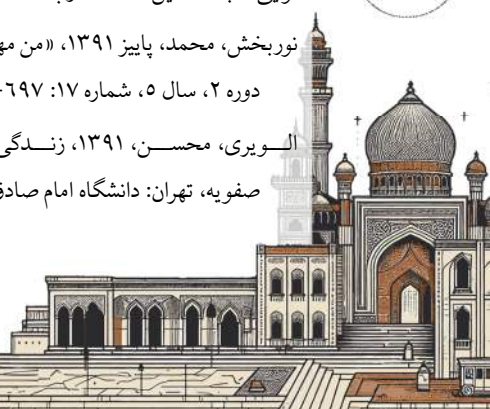 نوربخش، محمد، پاییز ۱۳۹۱، «من
دوره ۲، سال ٥، شماره ۱۷: ٦۹۷
الویری، محسن، ۱۳۹۱، زندگی
صفویه، تهران: دانشگاه امام صادق